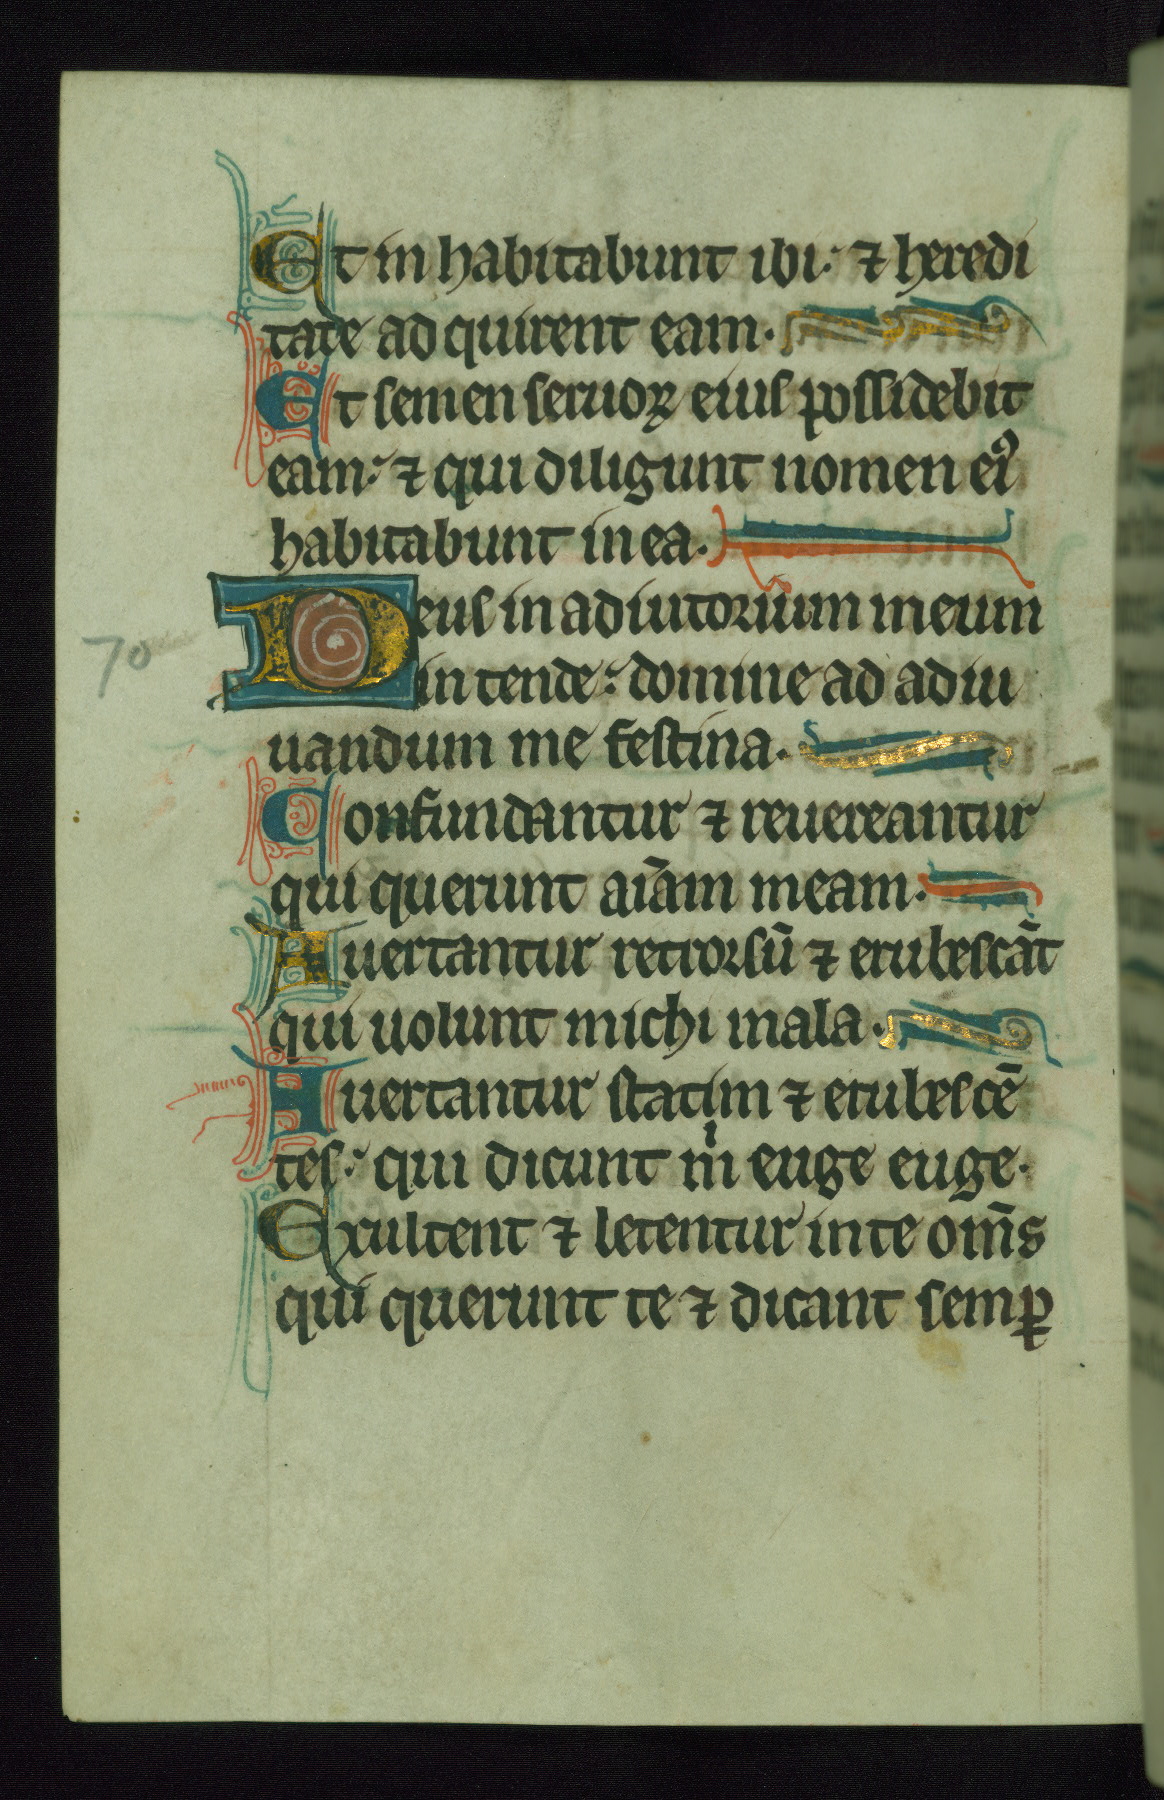 Et in habitabunt ibi: ⁊ heredi
tate adquirent eam.
Et semen seruoꝝ eius possidebit
eam: ⁊ qui diligunt nomen ei᾽
habitabunt in ea.
Deus in adiutorium meum
70
intende: domine ad adiu
uandum me festina.
Confundantur ⁊ reuereantur
qui querunt aīam meam.
Auertantur retrorsū ⁊ erubescāt
qui uolunt michi mala.
Auertantur statim ⁊ erubescē
tes: qui dicunt mⁱ euge euge.
Exultent ⁊ letentur in te om̄s
qui querunt te ⁊ dicant semꝑ